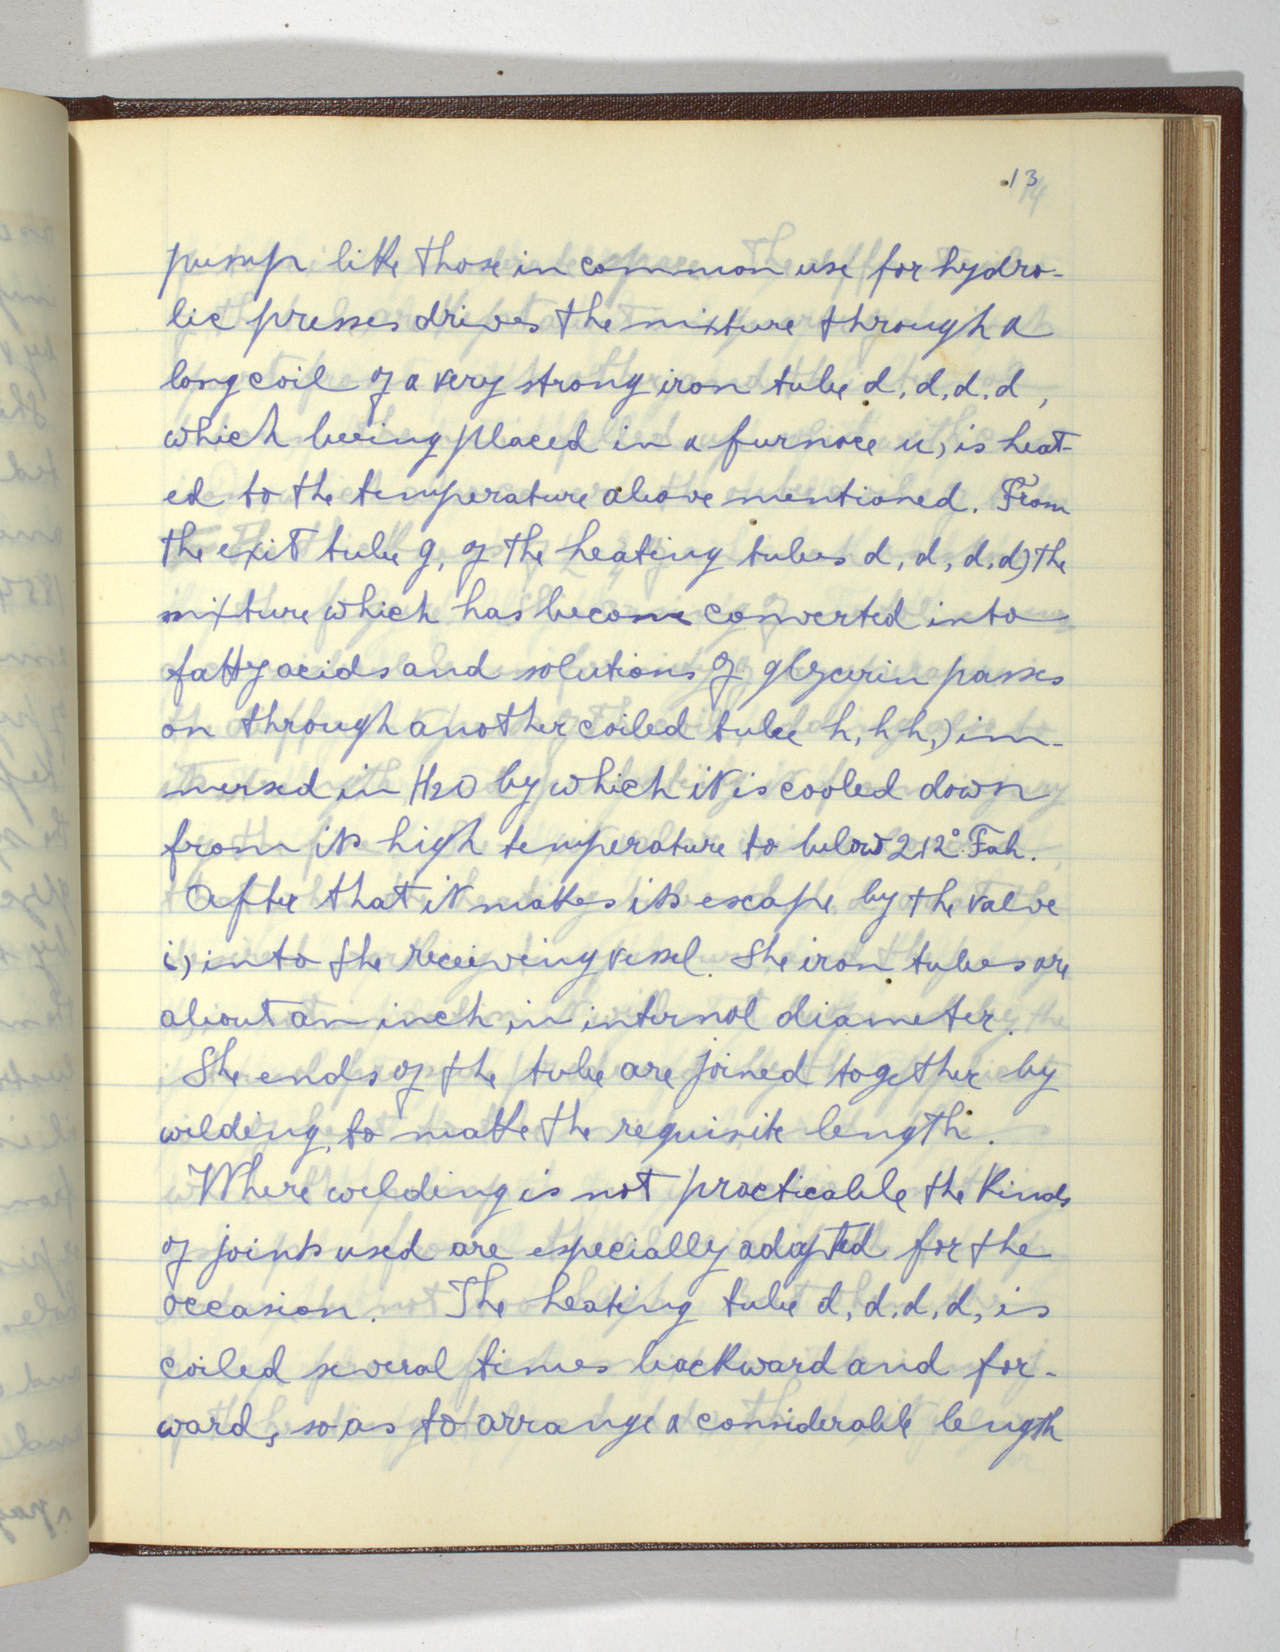 13
pump like those in common use for hydro-
lic presses drives the mixture through a
long coil of a very strong iron tube d, d, d, d,
which being placed in a furnace u, is heat-
ed to the temperature above mentioned. From
the exit tube g, of the heating tubes d, d, d, d) the
mixture which has become converted into
fatty acids and solutions of glycerin passes
on through another coiled tube h, h h,) im-
mersed in H2O by which it is cooled down
from its high temperature to below 212° Fah.
After that it makes its escape by the valve
i, into the receiving vessel. The iron tubes are
about an inch in internal diameter.
The ends of the tube are joined together by
wilding, to make the requisite length.
Where welding is not practicable the kinds
of joints used are especially adapted for the
occasion. The heating tube d, d, d, d, is
coiled several times backward and for-
ward, so as to arrange a considerable length